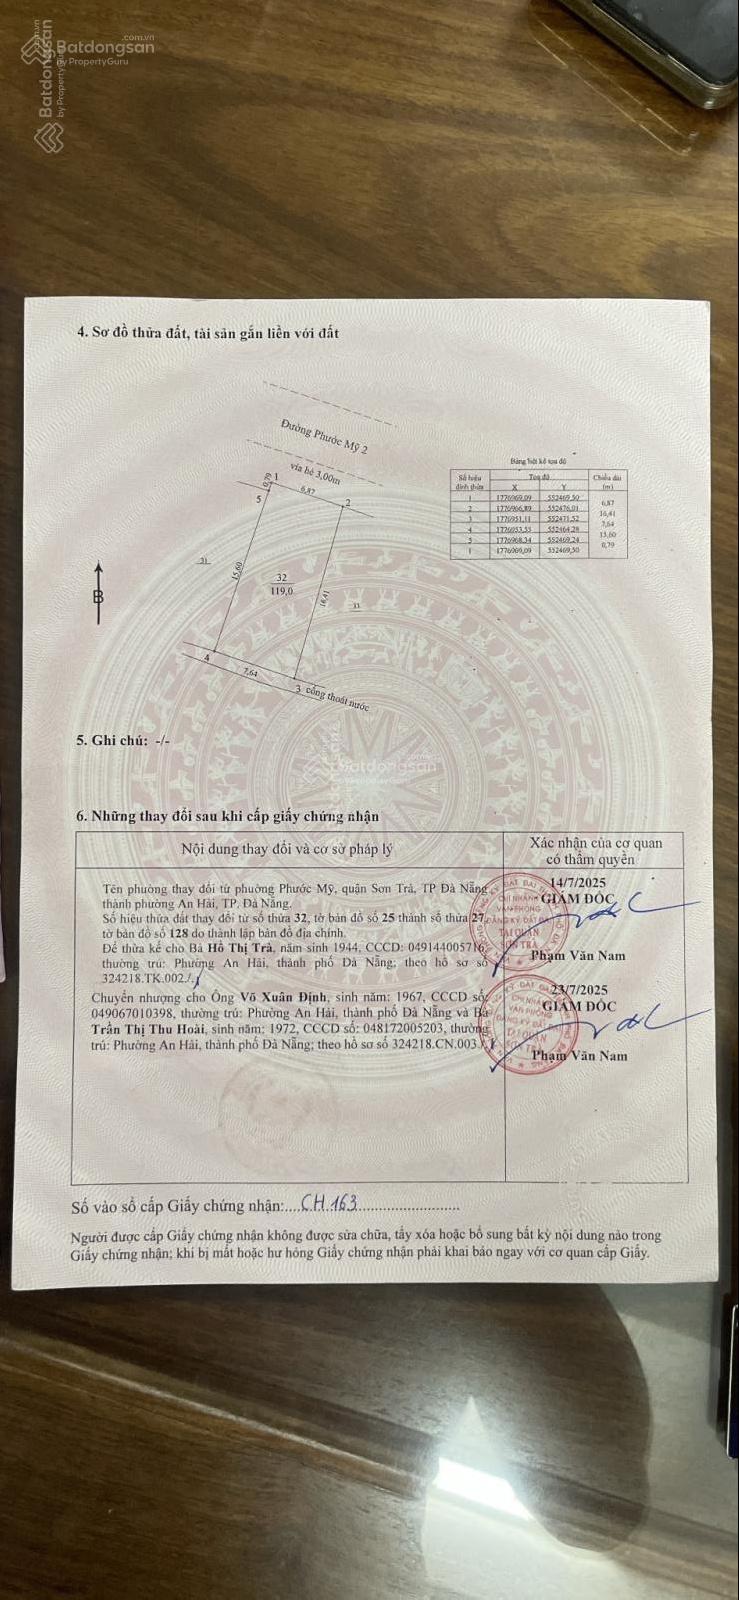 Batdongsan
.com.vn
by PropertyGuru
Batdongsan
.com.vn
by PropertyGuru
4. Sơ đồ thửa đất, tài sản gắn liền với đất
Đường Phước Mỹ 2
vỉa hè 3,00m
1
0,79
5
6,87
2
31
15,60
32
119,0
16,41
33
B
4
7,64
3 cống thoát nước
Bảng liệt kê tọa độ
Số hiệu đỉnh thửa
Tọa độ
Chiều dài (m)
X Y
1 1776969,09 552469,50
6,87
2 1776966,89 552476,01
16,41
3 1776951,11 552471,52
7,64
4 1776953,55 552464,28
15,60
5 1776968,34 552469,24
0,79
1 1776969,09 552469,50
5. Ghi chú: -/-
Batdongsan
.com.vn
by PropertyGuru
6. Những thay đổi sau khi cấp giấy chứng nhận
Nội dung thay đổi và cơ sở pháp lý
Xác nhận của cơ quan
có thẩm quyền
Tên phường thay đổi từ phường Phước Mỹ, quận Sơn Trà, TP Đà Nẵng
thành phường An Hải, TP. Đà Nẵng.
Số hiệu thửa đất thay đổi từ số thửa 32, tờ bản đồ số 25 thành số thửa 27,
tờ bản đồ số 128 do thành lập bản đồ địa chính.
Để thừa kế cho Bà Hồ Thị Trà, năm sinh 1944, CCCD: 049144005716,
thường trú: Phường An Hải, thành phố Đà Nẵng; theo hồ sơ số
324218.TK.002./.
14/7/2025
GIÁM ĐỐC
Phạm Văn Nam
Chuyển nhượng cho Ông Võ Xuân Định, sinh năm: 1967, CCCD số:
049067010398, thường trú: Phường An Hải, thành phố Đà Nẵng và Bà
Trần Thị Thu Hoài, sinh năm: 1972, CCCD số: 048172005203, thường
trú: Phường An Hải, thành phố Đà Nẵng; theo hồ sơ số 324218.CN.003./.
23/7/2025
GIÁM ĐỐC
Phạm Văn Nam
CHI NHÁNH
VĂN PHÒNG
ĐĂNG KÝ ĐẤT ĐAI
TẠI QUẬN
SƠN TRÀ
CHI NHÁNH
VĂN PHÒNG
ĐĂNG KÝ ĐẤT ĐAI
TẠI QUẬN
SƠN TRÀ
Số vào sổ cấp Giấy chứng nhận:....CH 163..........................
Người được cấp Giấy chứng nhận không được sửa chữa, tẩy xóa hoặc bổ sung bất kỳ nội dung nào trong
Giấy chứng nhận; khi bị mất hoặc hư hỏng Giấy chứng nhận phải khai báo ngay với cơ quan cấp Giấy.